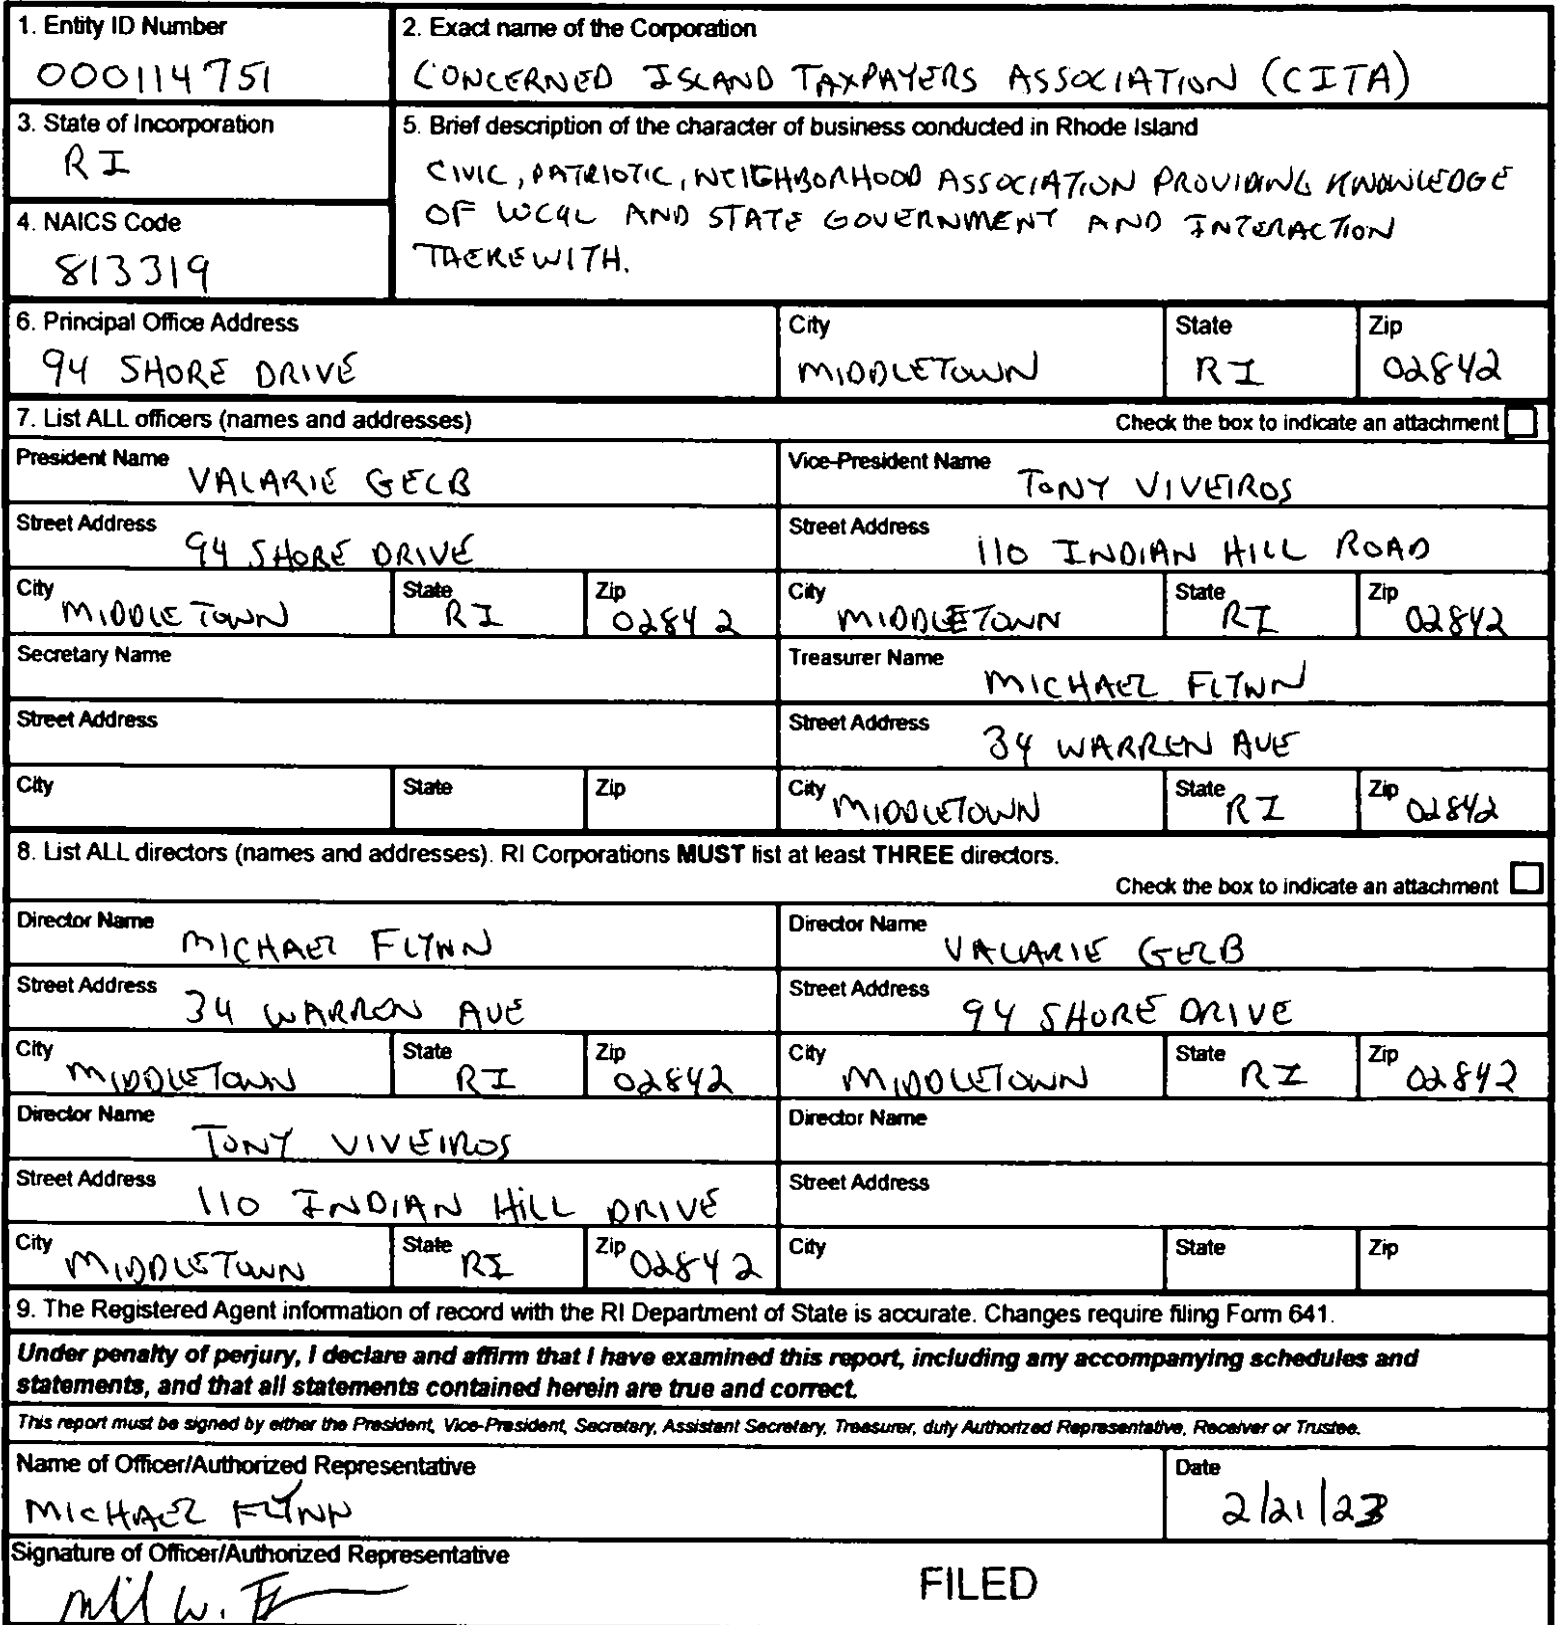 1. Entity ID Number
000114751
2. Exact name of the Corporation
CONCERNED ISLAND TAXPAYERS ASSOCIATION (CITA)
3. State of Incorporation
RI
5. Brief description of the character of business conducted in Rhode Island
CIVIC, PATRIOTIC, NEIGHBORHOOD ASSOCIATION PROVIDING KNOWLEDGE
OF LOCAL AND STATE GOVERNMENT AND INTERACTION
THEREWITH.
4. NAICS Code
813319
6. Principal Office Address
94 SHORE DRIVE
City
MIDDLETOWN
State
RI
Zip
02842
7. List ALL officers (names and addresses)
Check the box to indicate an attachment
President Name VALARIE GELB
Vice-President Name TONY VIVEIROS
Street Address 94 SHORE DRIVE
Street Address 110 INDIAN HILL ROAD
City MIDDLETOWN State RI Zip 02842
City MIDDLETOWN State RI Zip 02842
Secretary Name
Treasurer Name MICHAEL FLYNN
Street Address
Street Address 34 WARREN AVE
City State Zip
City MIDDLETOWN State RI Zip 02842
8. List ALL directors (names and addresses). RI Corporations MUST list at least THREE directors.
Check the box to indicate an attachment
Director Name MICHAEL FLYNN
Director Name VALARIE GELB
Street Address 34 WARREN AVE
Street Address 94 SHORE DRIVE
City MIDDLETOWN State RI Zip 02842
City MIDDLETOWN State RI Zip 02842
Director Name TONY VIVEIROS
Director Name
Street Address 110 INDIAN HILL DRIVE
Street Address
City MIDDLETOWN State RI Zip 02842
City State Zip
9. The Registered Agent information of record with the RI Department of State is accurate. Changes require filing Form 641.
Under penalty of perjury, I declare and affirm that I have examined this report, including any accompanying schedules and
statements, and that all statements contained herein are true and correct.
This report must be signed by either the President, Vice-President, Secretary, Assistant Secretary, Treasurer, duly Authorized Representative, Receiver or Trustee.
Name of Officer/Authorized Representative
MICHAEL FLYNN
Date
2/21/23
Signature of Officer/Authorized Representative
FILED